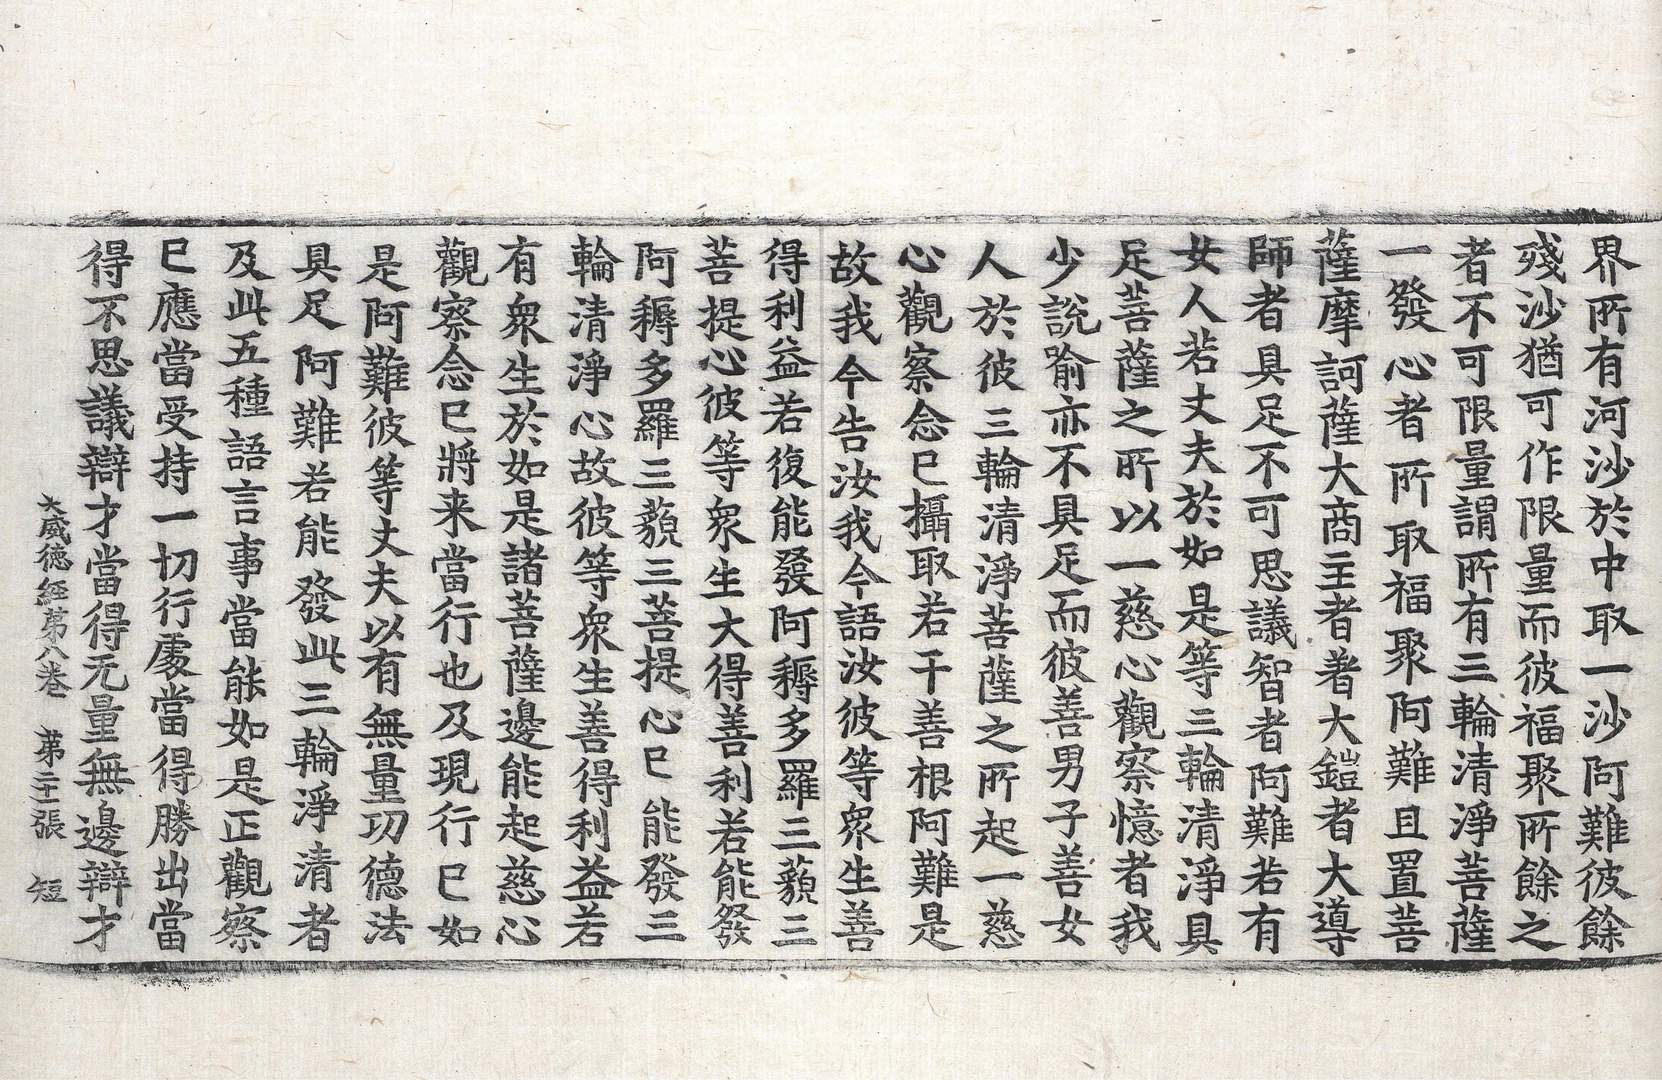 界所有河沙於中取一沙阿難彼餘
殘沙猶可作限量而彼福聚所餘之
者不可限量謂所有三輪清淨菩薩
一發心者所取福聚阿難且置菩
薩摩訶薩大商主者著大鎧者大導
師者具足不可思議智者阿難若有
女人若丈夫於如是等三輪清淨具
足菩薩之所以一慈心觀察憶者我
少說喻亦不具足而彼善男子善女
人於彼三輪清淨菩薩之所起一慈
心觀察念已攝取若干善根阿難是
故我今告汝我今語汝彼等眾生善
得利益若復能發阿耨多羅三藐三
菩提心彼等眾生大得善利若能發
阿耨多羅三藐三菩提心已能發三
輪清淨心故彼等眾生善得利益若
有眾生於如是諸菩薩邊能起慈心
觀察念已將来當行也及現行已如
是阿難彼等丈夫以有無量功德法
具足阿難若能發此三輪淨清者
及此五種語言事當能如是正觀察
已應當受持一切行處當得勝出當
得不思議辯才當得无量無邊辯才
大威德經第八卷 第二十一張 短